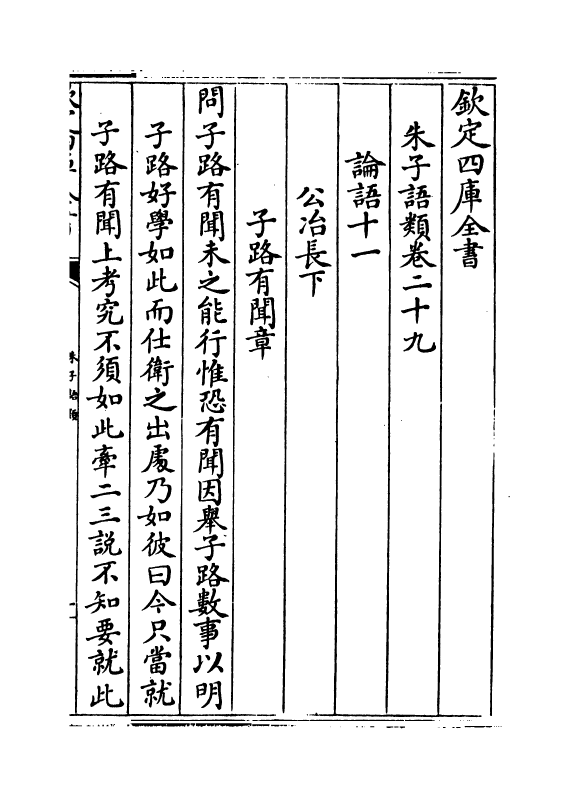 欽定四庫全書
朱子語類卷二十九
論語十一
公冶長下
子路有聞章
問子路有聞未之能行惟恐有聞因舉子路數事以明
子路好學如此而仕衛之出處乃如彼曰今只當就
子路有聞上考究不須如此牽二三說不知要就此
朱子語類